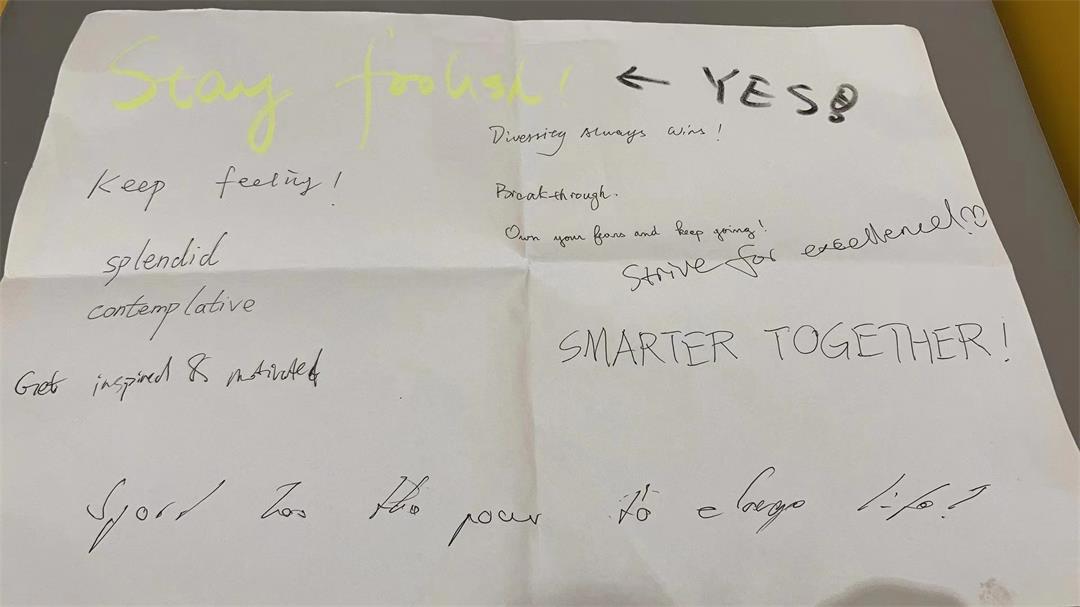 Stay foolish! ← YES!
Diversity Always wins!
Keep feeling!
Breakthrough.
Own your fears and keep going!
Strive for excellence!♡
splendid
contemplative
SMARTER TOGETHER!
Get inspired & motivated
Sport has the power to change life!